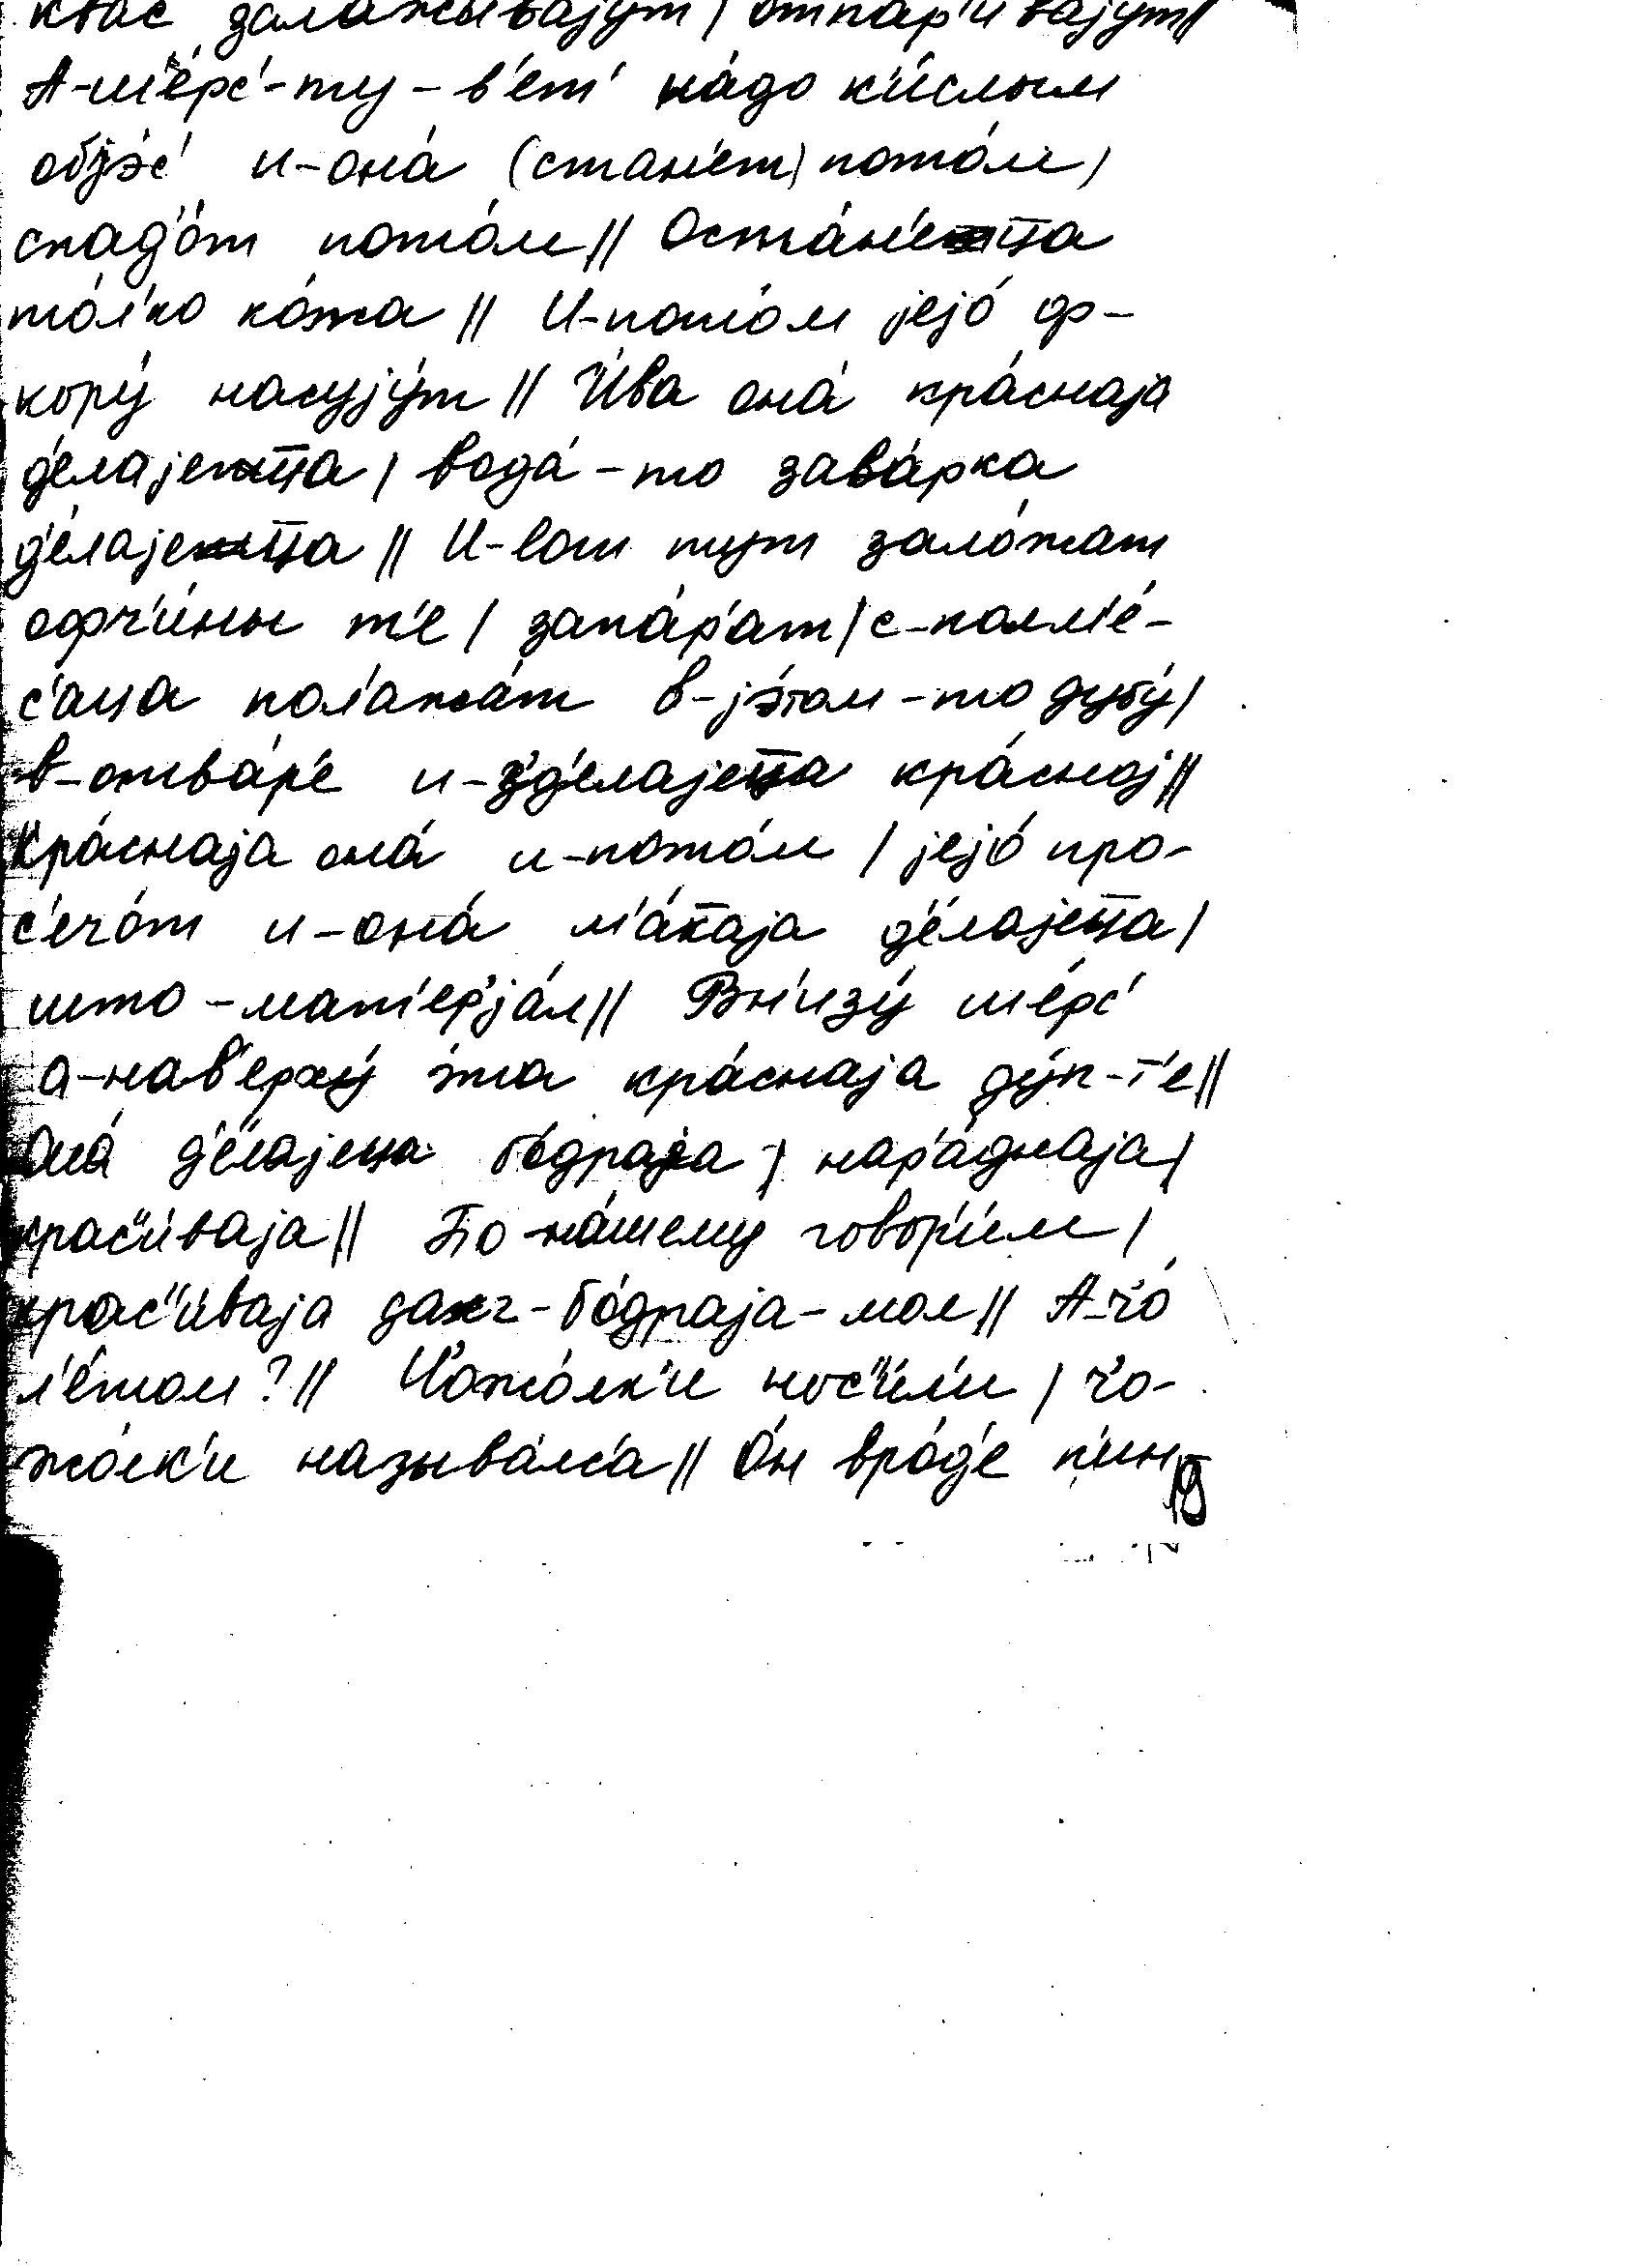 квас заложывајут / отпар'ивајут //
А-ше́рс'-ту-в'ет' на́до к'и́слым
и-она́ (стан'ет) потом /
спад'о́т пото́м // Оста́н'ец̅а
то́л'ко ко́жа // И-пото́м јејо́ ф-
кору́ насују́т // И́ва она́ кра́снаја
д'е́лајец̅а / вода́-то зава́рка
д'е́лајец̅а // И-вот тут зало́жат
офч'и́ны т'е / запа́р'ат / с-полм'е́-
с'аца пол'ажа́т в-јэ́том-то дубу́ /
в-отва́р'е и-з'д'е́лајец̅а кра́сној //
Кра́снаја она́ и-пото́м / јејо́ про-
с'ечо́т и-она́ м'а́каја д'е́лајец̅а /
што-мат'ерја́л // Вн'изу́ ше́рс'
а-нав'ерху́ э́та кра́снаја ду́п-т'е //
Она́ д'е́лајеца бо́драја / нар'а́днаја /
крас'и́ваја // По-на́шему говор'и́м /
крас'и́ваја даже-бо́драја-мол // А-ч'о́
л'е́том? // Ч'ожо́лк'и нос'и́л'и / ч'о-
жо́лк'и называ́лс'а // О́н вро́д'е п'ин
19